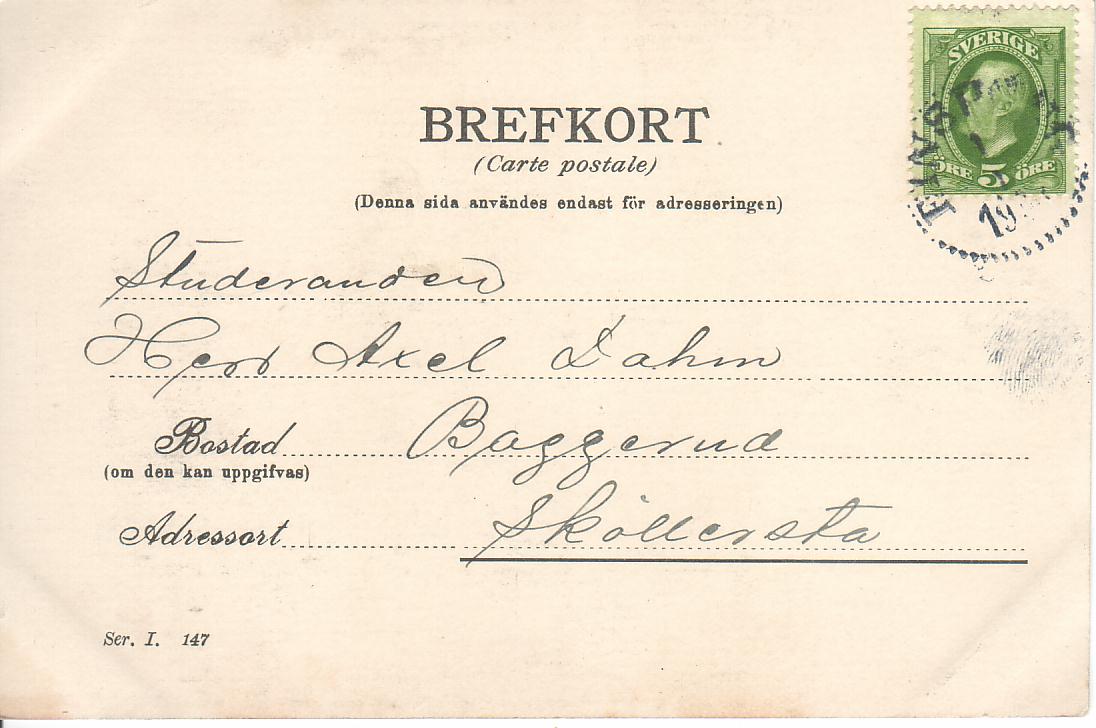 SVERIGE
5
ÖRE ÖRE
BREFKORT
(Carte postale)
(Denna sida användes endast för adresseringen)
Studeranden
Herr Axel Dahm
Bostad Baggerud
(om den kan uppgifvas)
Adressort Sköllersta
Ser. I. 147